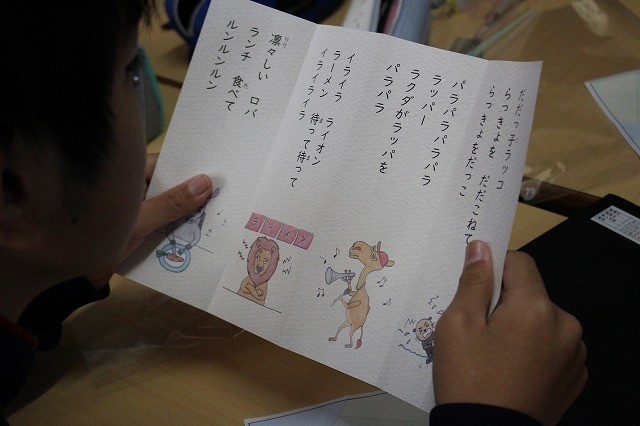 だだっ子ラッコ
らっきょを だだこねて
らっきょをだっこ
パラパラパラパラ
ラッパー
ラクダがラッパを
パラパラ
イライラ ライオン
ラーメン 待って待って
イライライラ
凛々しい ロバ
ランチ 食べて
ルンルンルン